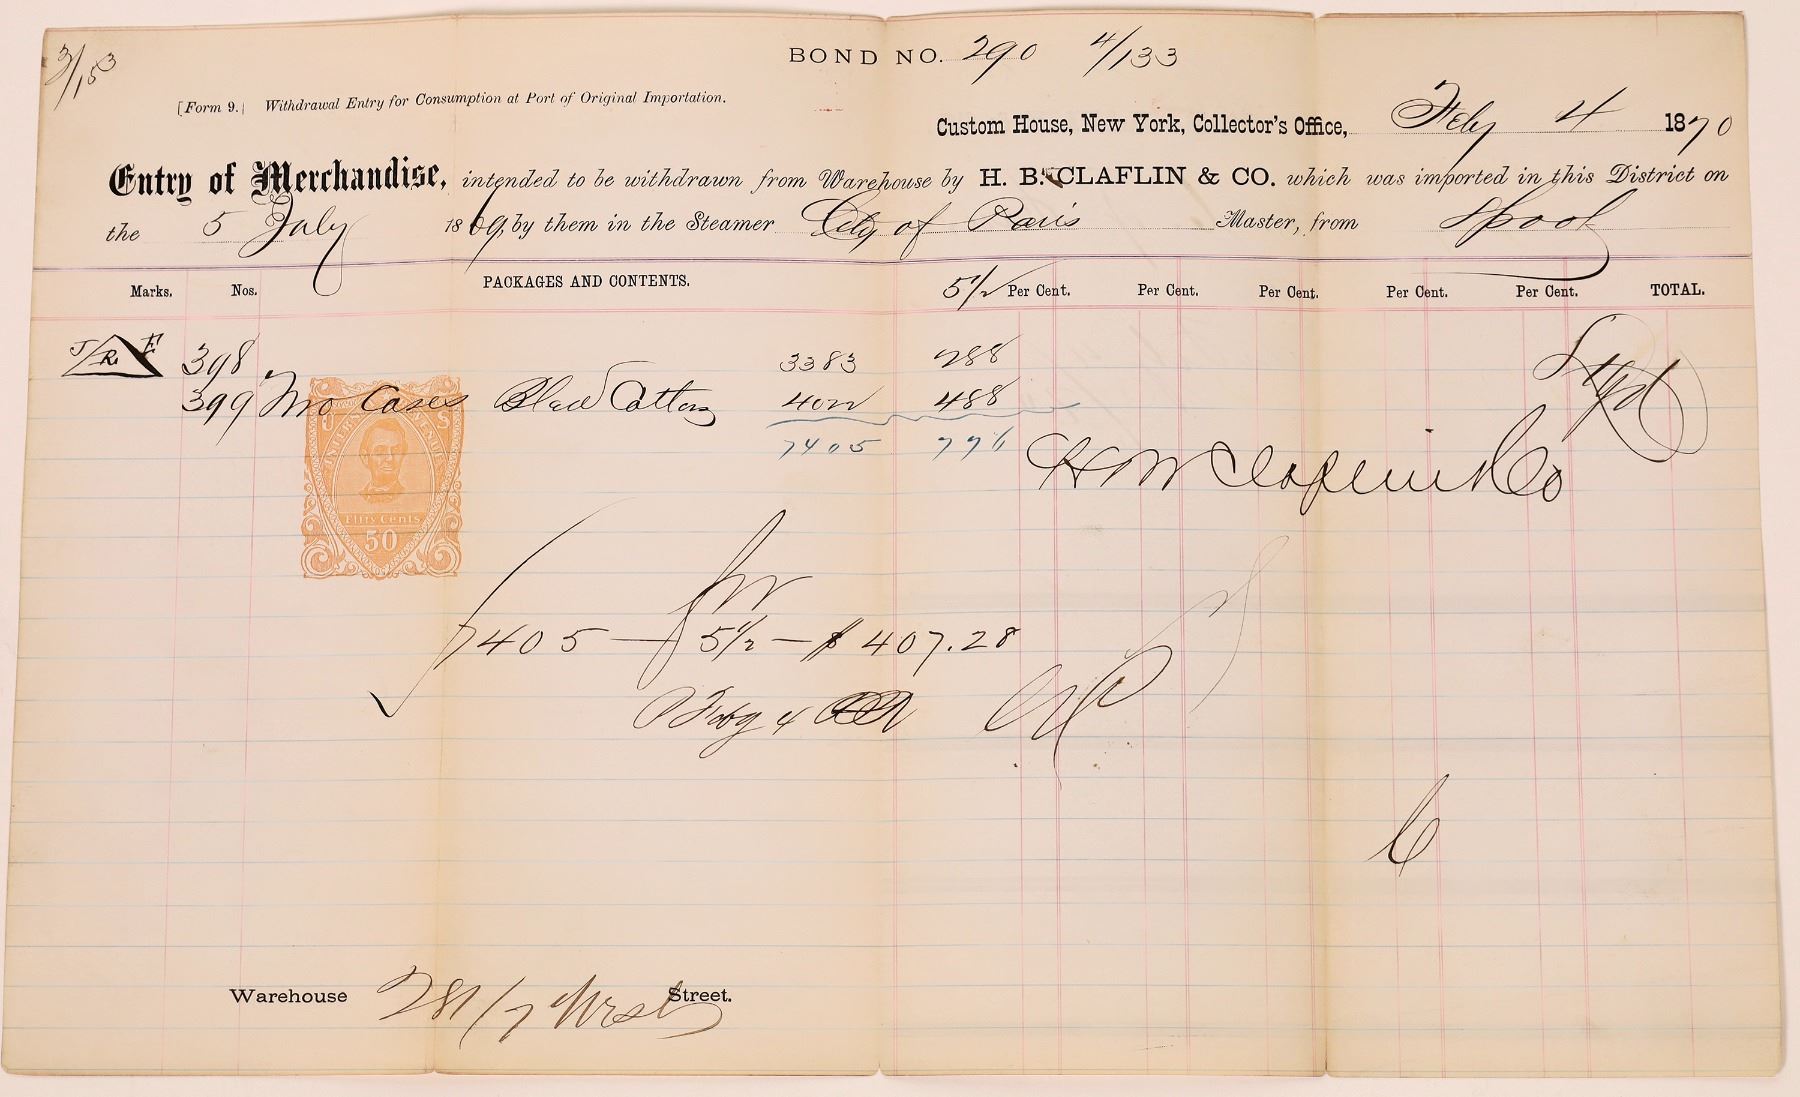 3/153
BOND NO. 290 4/133
[Form 9.] Withdrawal Entry for Consumption at Port of Original Importation.
Custom House, New York, Collector's Office, Feby 4 1870
Entry of Merchandise, intended to be withdrawn from Warehouse by H. B. CLAFLIN & CO. which was imported in this District on
the 5 July 1869, by them in the Steamer City of Paris Master, from Lpool
Marks. Nos. PACKAGES AND CONTENTS. 5 1/2 Per Cent. Per Cent. Per Cent. Per Cent. Per Cent. TOTAL.
J R E 398 3383 288
399 Two Cases Cottons 4022 488
7405 776
U S
INTERNAL REVENUE
Fifty Cents
50
H B Claflin & Co
7405 — 5 1/2 — $ 407.28
Feby 4
Warehouse 281/7 West Street.